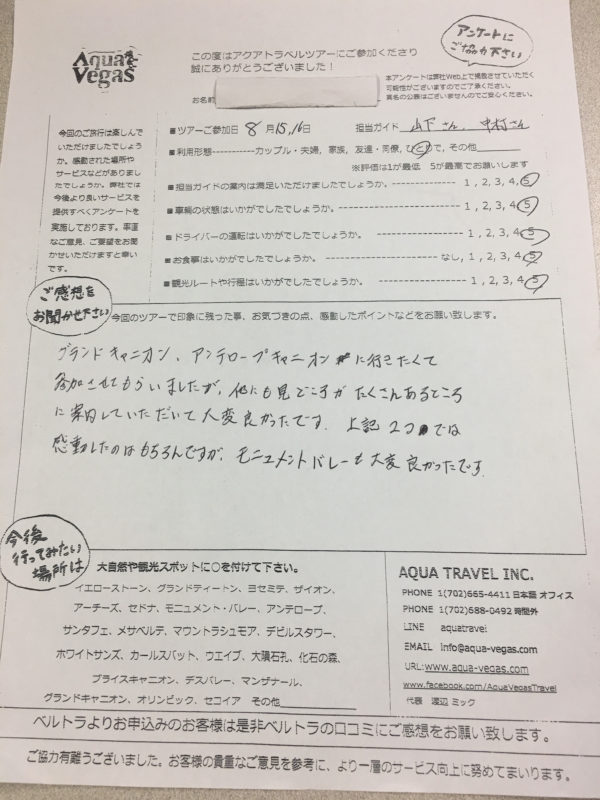 Aqua Vegas
この度はアクアトラベルツアーにご参加くださり
誠にありがとうございました！
アンケートに
ご協力下さい
本アンケートは弊社Web上で掲載させていただく
可能性がございますのでご了承ください。
実名の公表はございませんのでご安心ください。
お名前
今回のご旅行は楽しんで
いただけましたでしょう
か。感動された場所や
サービスなどがありまし
たでしょうか。弊社では
今後より良いサービスを
提供すべくアンケートを
実施しております。率直
なご意見、ご要望をお聞
かせいただけますと幸い
です。
■ツアーご参加日 8 月15,16日 担当ガイド 山下さん、中村さん
■利用形態-----------カップル・夫婦, 家族, 友達・同僚, ひとりで, その他
※評価は1が最低 5が最高でお願いします
■担当ガイドの案内は満足いただけましたでしょうか。 --------------- 1, 2, 3, 4, 5
■車輌の状態はいかがでしたでしょうか。 --------------- 1, 2, 3, 4, 5
■ドライバーの運転はいかがでしたでしょうか。 --------------- 1, 2, 3, 4, 5
■お食事はいかがでしたでしょうか。 --------------- なし, 1, 2, 3, 4, 5
■観光ルートや行程はいかがでしたでしょうか。 --------------- 1, 2, 3, 4, 5
ご感想を
お聞かせ下さい
今回のツアーで印象に残った事、お気づきの点、感動したポイントなどをお願い致します。
グランドキャニオン、アンテロープキャニオンに行きたくて
参加させてもらいましたが、他にも見どころがたくさんあるところ
に案内していただいて大変良かったです. 上記2つでは
感動したのはもちろんですが、モニュメントバレーも大変良かったです.
今後
行ってみたい
場所は
大自然や観光スポットに○を付けて下さい。
イエローストーン、グランドティートン、ヨセミテ、ザイオン、
アーチーズ、セドナ、モニュメント・バレー、アンテロープ、
サンタフェ、メサベルデ、マウントラシュモア、デビルスタワー、
ホワイトサンズ、カールスバット、ウエイブ、大隕石孔、化石の森、
ブライスキャニオン、デスバレー、マンザナール、
グランドキャニオン、オリンピック、セコイア その他
AQUA TRAVEL INC.
PHONE 1(702)665-4411 日本語 オフィス
PHONE 1(702)688-0492 時間外
LINE aquatravel
EMAIL info@aqua-vegas.com
URL:www.aqua-vegas.com
www.facebook.com/AquaVegasTravel
代表 渡辺 ミック
ベルトラよりお申込みのお客様は是非ベルトラの口コミにご感想をお願い致します。
ご協力有難うございました。お客様の貴重なご意見を参考に、より一層のサービス向上に努めてまいります。